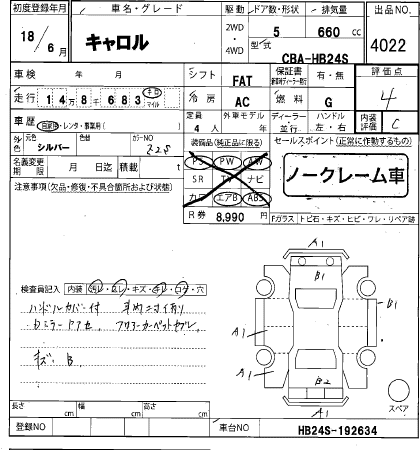 初度登録年月
車名・グレード
駆動 ドア数・形状 排気量
出品NO.
18/6月
キャロル
2WD・4WD
5
660 cc
4022
型式
CBA-HB24S
車検 年 月
シフト
FAT
保証書
有・無
評価点
4
走行 14万8千683 キロ マイル
冷房
AC
燃料
G
内装評価
C
車歴
自家用・レンタ・事業用( )
定員
4人
外車モデル
年
ディーラー・並行
ハンドル
左・右
外色
元色
シルバー
色替
カラーNO
Z2S
装備品(純正品に限る)
PS PW AW
SR TV ナビ
カワ エアB ABS
セールスポイント(正常に作動するもの)
ノークレーム車
名義変更期限 月 日迄
積載 t
注意事項(欠品・修復・不具合箇所および状態)
R券 8,990円
Fガラス トビ石・キズ・ヒビ・ワレ・リペア跡
A1
B1
B1
A1
A1
B2
A1
スペア
検査員記入
内装
汚レ・スレ・キズ・キレ・コゲ・穴
ハンドルカバー付
車内ニコイ有リ
キズ・B
長さ cm
幅 cm
高さ cm
登録NO
車台NO
HB24S-192634